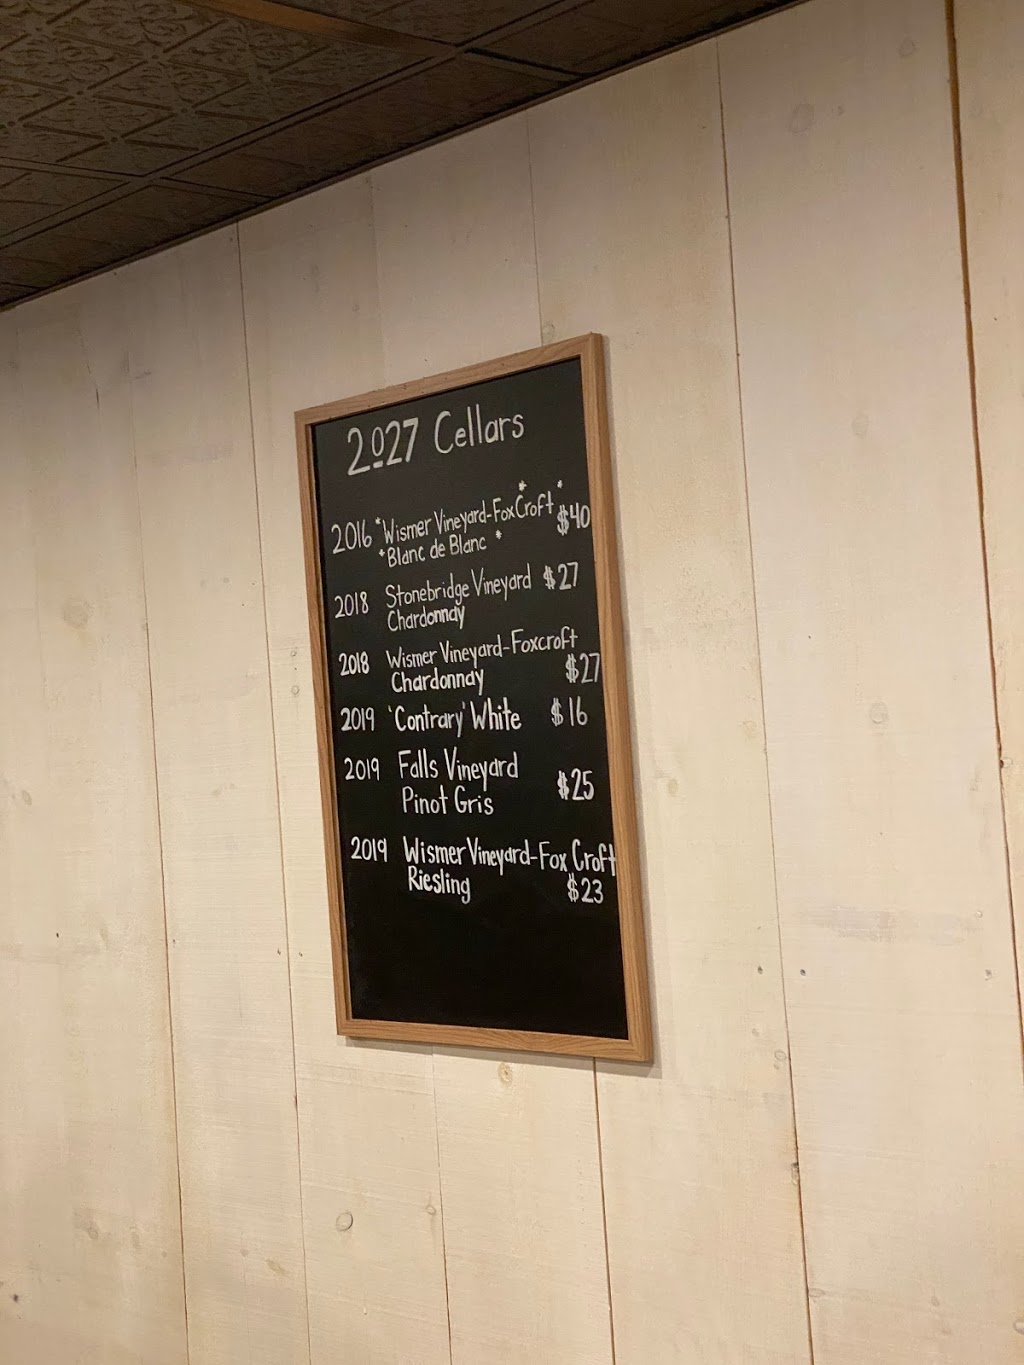 2027 Cellars
2016 *Wismer Vineyard-FoxCroft* $40
*Blanc de Blanc *
2018 Stonebridge Vineyard $27
Chardonnay
2018 Wismer Vineyard-Foxcroft
Chardonnay $27
2019 'Contrary' White $16
2019 Falls Vineyard
Pinot Gris $25
2019 Wismer Vineyard-Fox Croft
Riesling $23